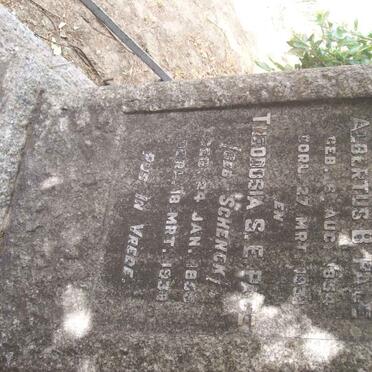 ALBERTUS B. PAGE
GEB. 6 AUG. 1854
OORL. 27 MRT.
EN
THEODOSIA S. E. PAGE
(GEB. SCHENCK)
GEB. 24 JAN. 1858
OORL. 18 MRT. 1938
RUS IN VREDE.